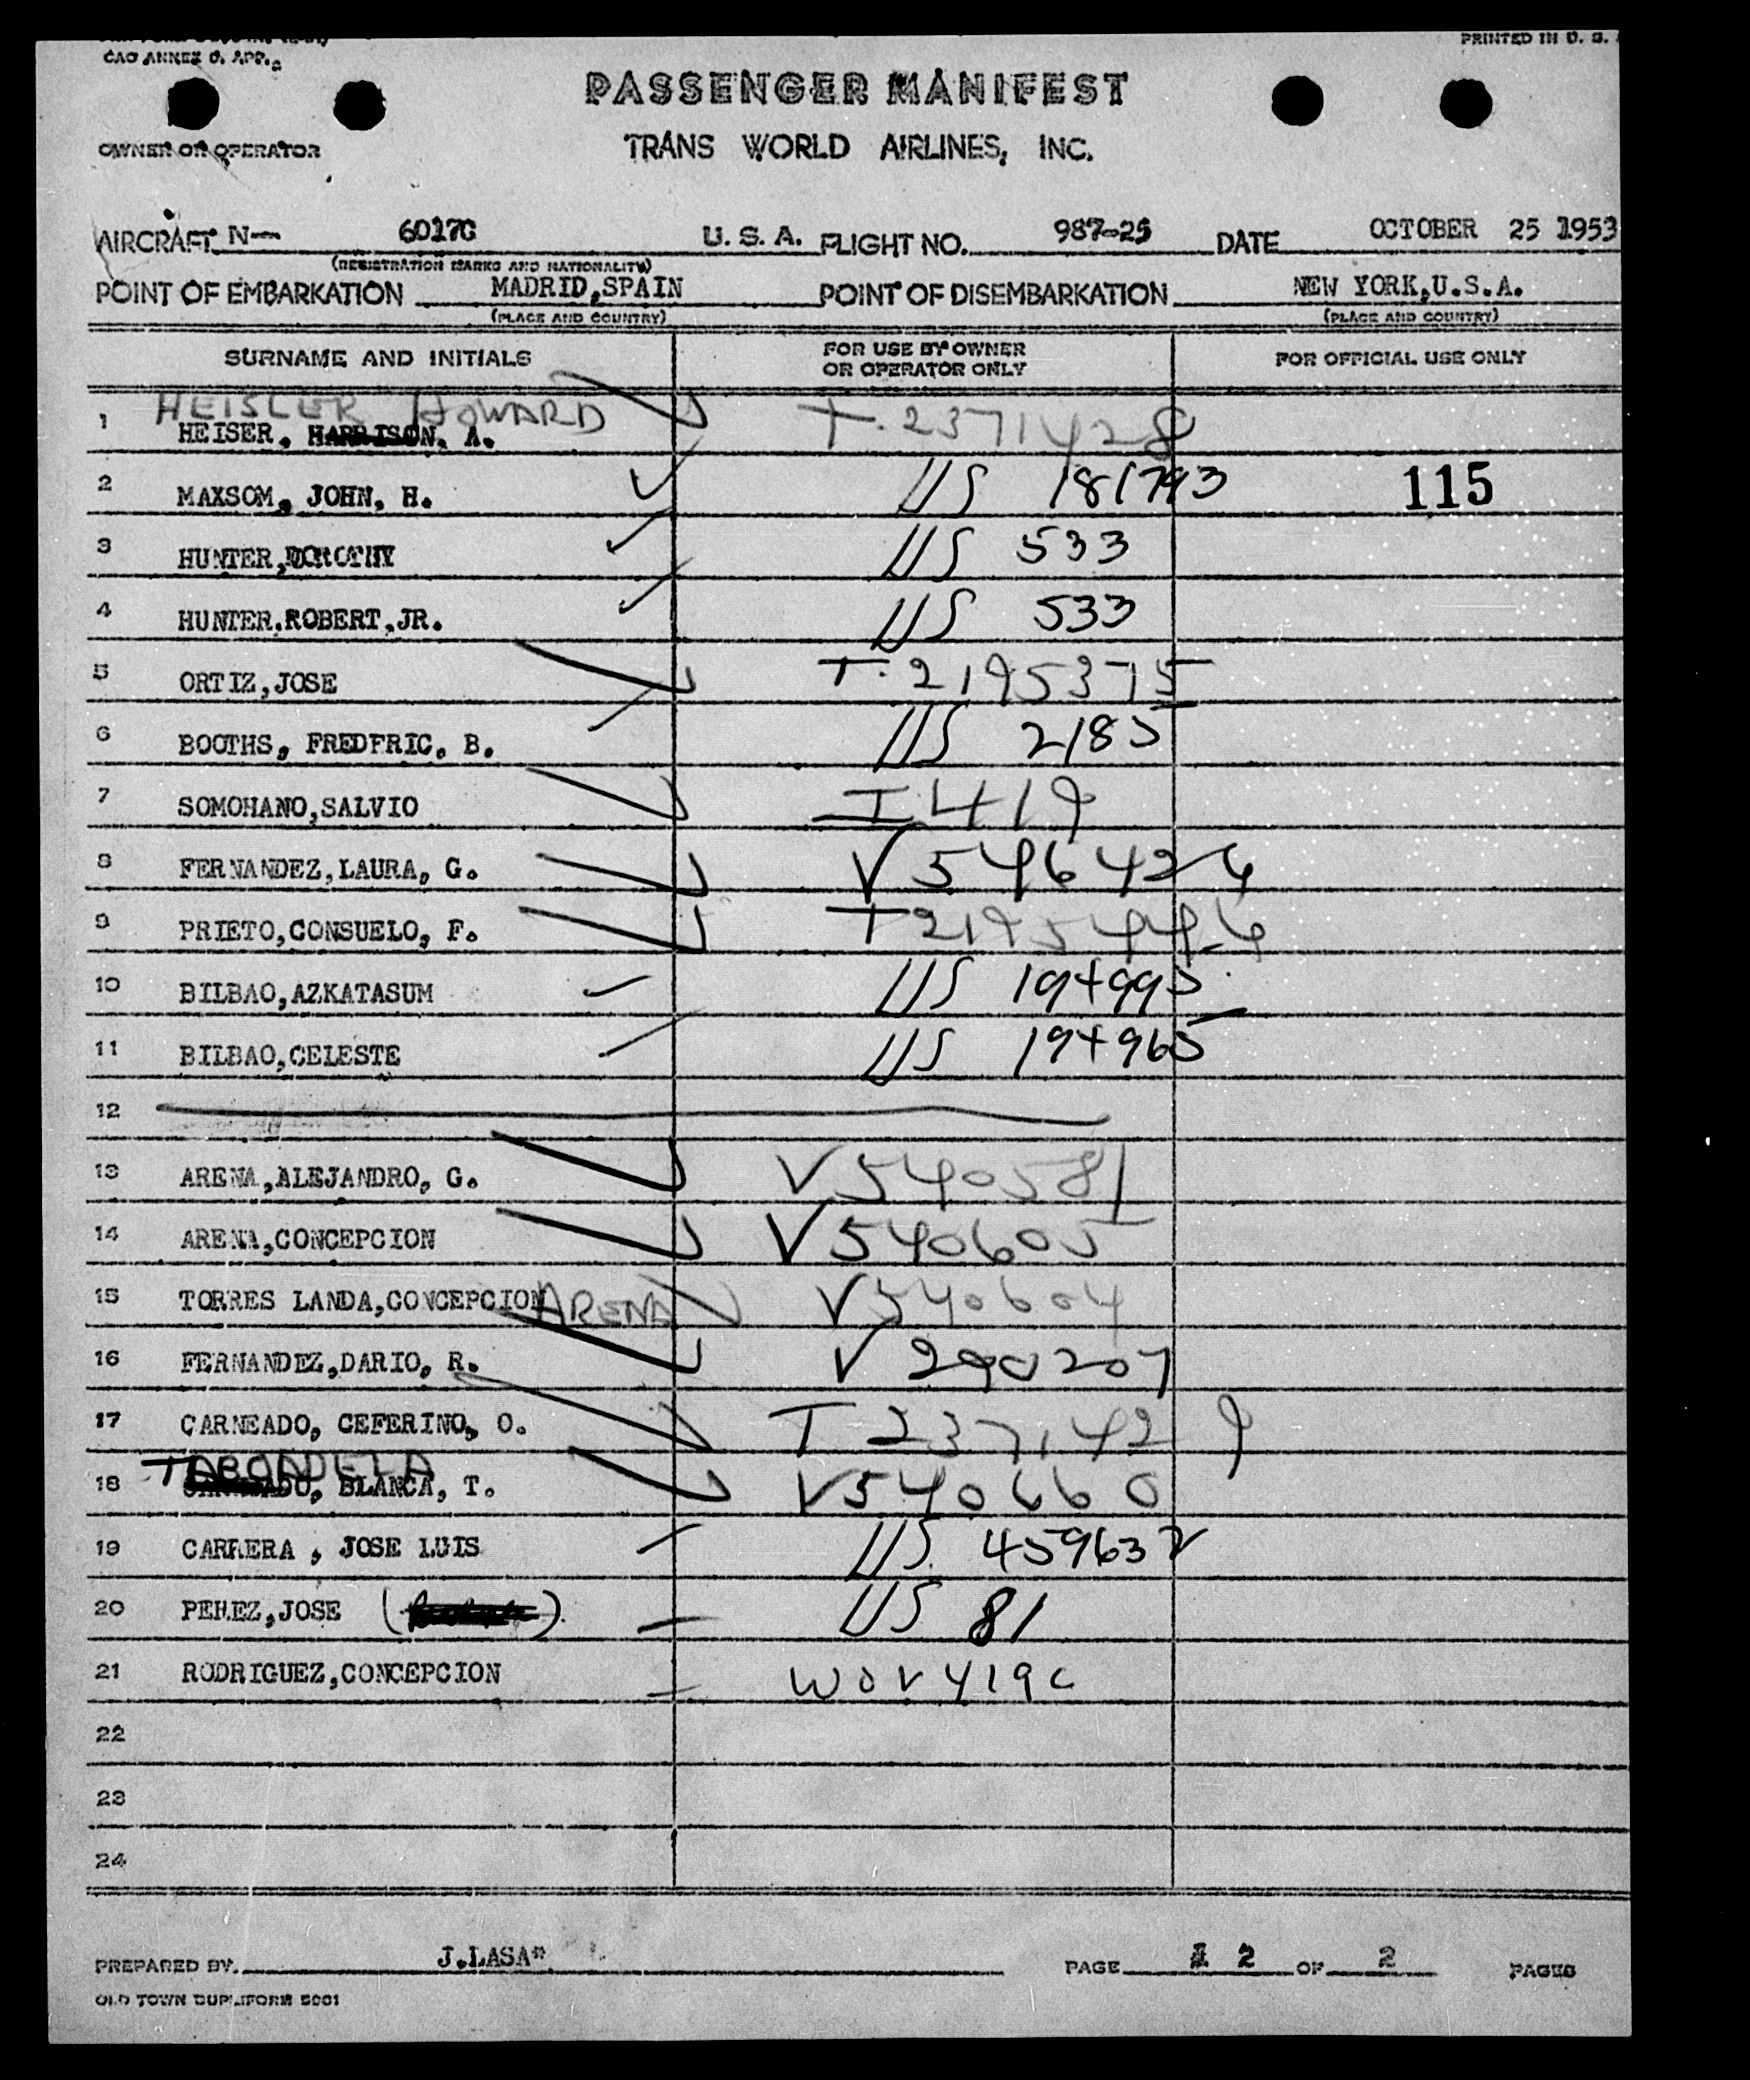 CAO ANNEX 9, APP.
PRINTED IN U. S.
PASSENGER MANIFEST
OWNER OR OPERATOR
TRANS WORLD AIRLINES, INC.
AIRCRAFT N— 6017C U. S. A. FLIGHT NO. 987-25 DATE OCTOBER 25 1953
(REGISTRATION MARKS AND NATIONALITY)
POINT OF EMBARKATION MADRID,SPAIN POINT OF DISEMBARKATION NEW YORK,U.S.A.
(PLACE AND COUNTRY) (PLACE AND COUNTRY)
SURNAME AND INITIALS FOR USE BY OWNER OR OPERATOR ONLY FOR OFFICIAL USE ONLY
HEISLER HOWARD
1 HEISER. HARRISON. A. T. 2371428
2 MAXSOM, JOHN, H. US 181793 115
3 HUNTER,DOROTHY US 533
4 HUNTER.ROBERT,JR. US 533
5 ORTIZ,JOSE T. 2195375
6 BOOTHS, FREDFRIC. B. US 2185
7 SOMOHANO,SALVIO I 419
8 FERNANDEZ,LAURA, G. V 546426
9 PRIETO,CONSUELO, F. T 2195446
10 BILBAO,AZKATASUM US 194995
11 BILBAO,CELESTE US 194965
12
13 ARENA,ALEJANDRO, G. V 540581
14 ARENA,CONCEPCION V 540605
15 TORRES LANDA,CONCEPCION ARENA V 540604
16 FERNANDEZ,DARIO, R. V 290207
17 CARNEADO, CEFERINO, O. T 2371429
TABOADELA
18 BLANCA, T. V 540660
19 CARRERA , JOSE LUIS US 459632
20 PEREZ,JOSE ( ) US 81
21 RODRIGUEZ,CONCEPCION
22
23
24
PREPARED BY. J.LASA* PAGE 2 OF 2 PAGES
OLD TOWN DUPLIFORM 5001